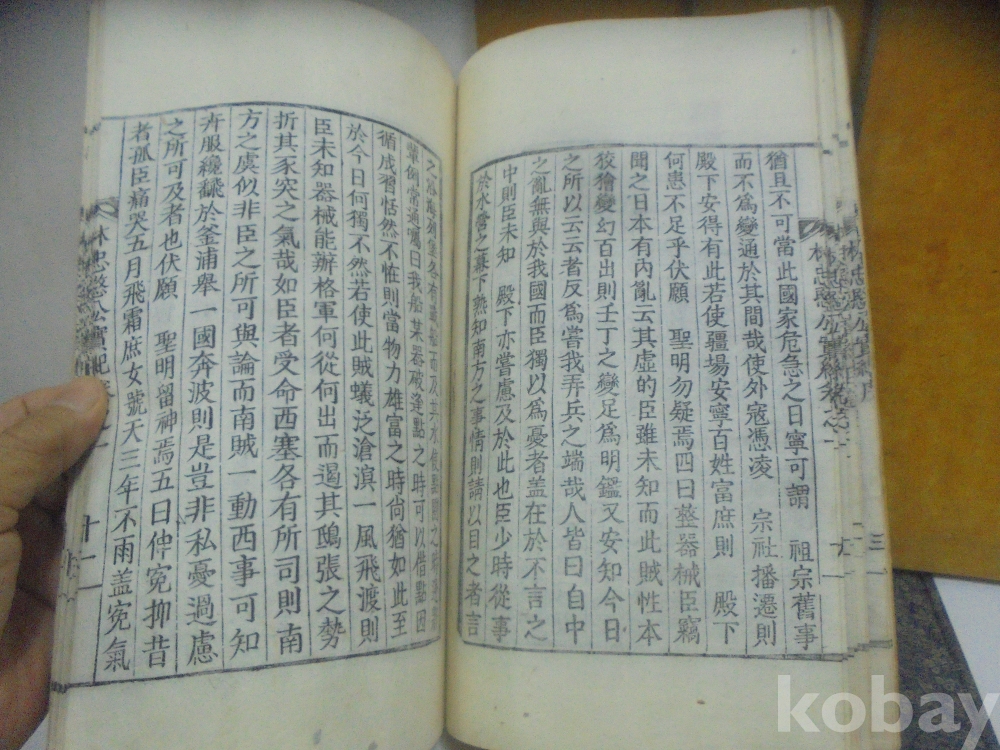 猶且不可當此國家危急之日寧可謂 祖宗舊事
而不爲變通於其間哉使外寇憑凌 宗社播遷則
殿下安得有此若使疆場安寧百姓富庶則 殿下
何患不足乎伏願 聖明勿疑焉四曰整器械臣竊
聞之日本有內亂云其虛的臣雖未知而此賊性本
狡獪變幻百出則壬丁之變足爲明鑑又安知今日
之所以云云者反爲嘗我弄兵之端哉人皆曰自中
之亂無與於我國而臣獨以爲憂者盖在於不言之
中則臣未知 殿下亦嘗慮及於此也臣少時從事
於水營之幕下熟知南方之事情則請以目之者言
之沿海列堡各有戰船而及其水使點閱之時
輩例當通囑曰我船某器破逢點之時可以借點因
循成習恬然不恠則當物力雄富之時尙猶如此至
於今日何獨不然若使此賊蟻泛滄溟一風飛渡則
臣未知器械能辦格軍何從何出而遏其鴟張之勢
折其豕突之氣哉如臣者受命西塞各有所司則南
方之虞似非臣之所可與論而南賊一動西事可知
卉服纔飜於釜浦舉一國奔波則是豈非私憂過慮
之所可及者也伏願 聖明留神焉五曰伸冤抑昔
者孤臣痛哭五月飛霜庶女號天三年不雨盖冤氣
林忠愍公實紀卷之一
十一
kobay